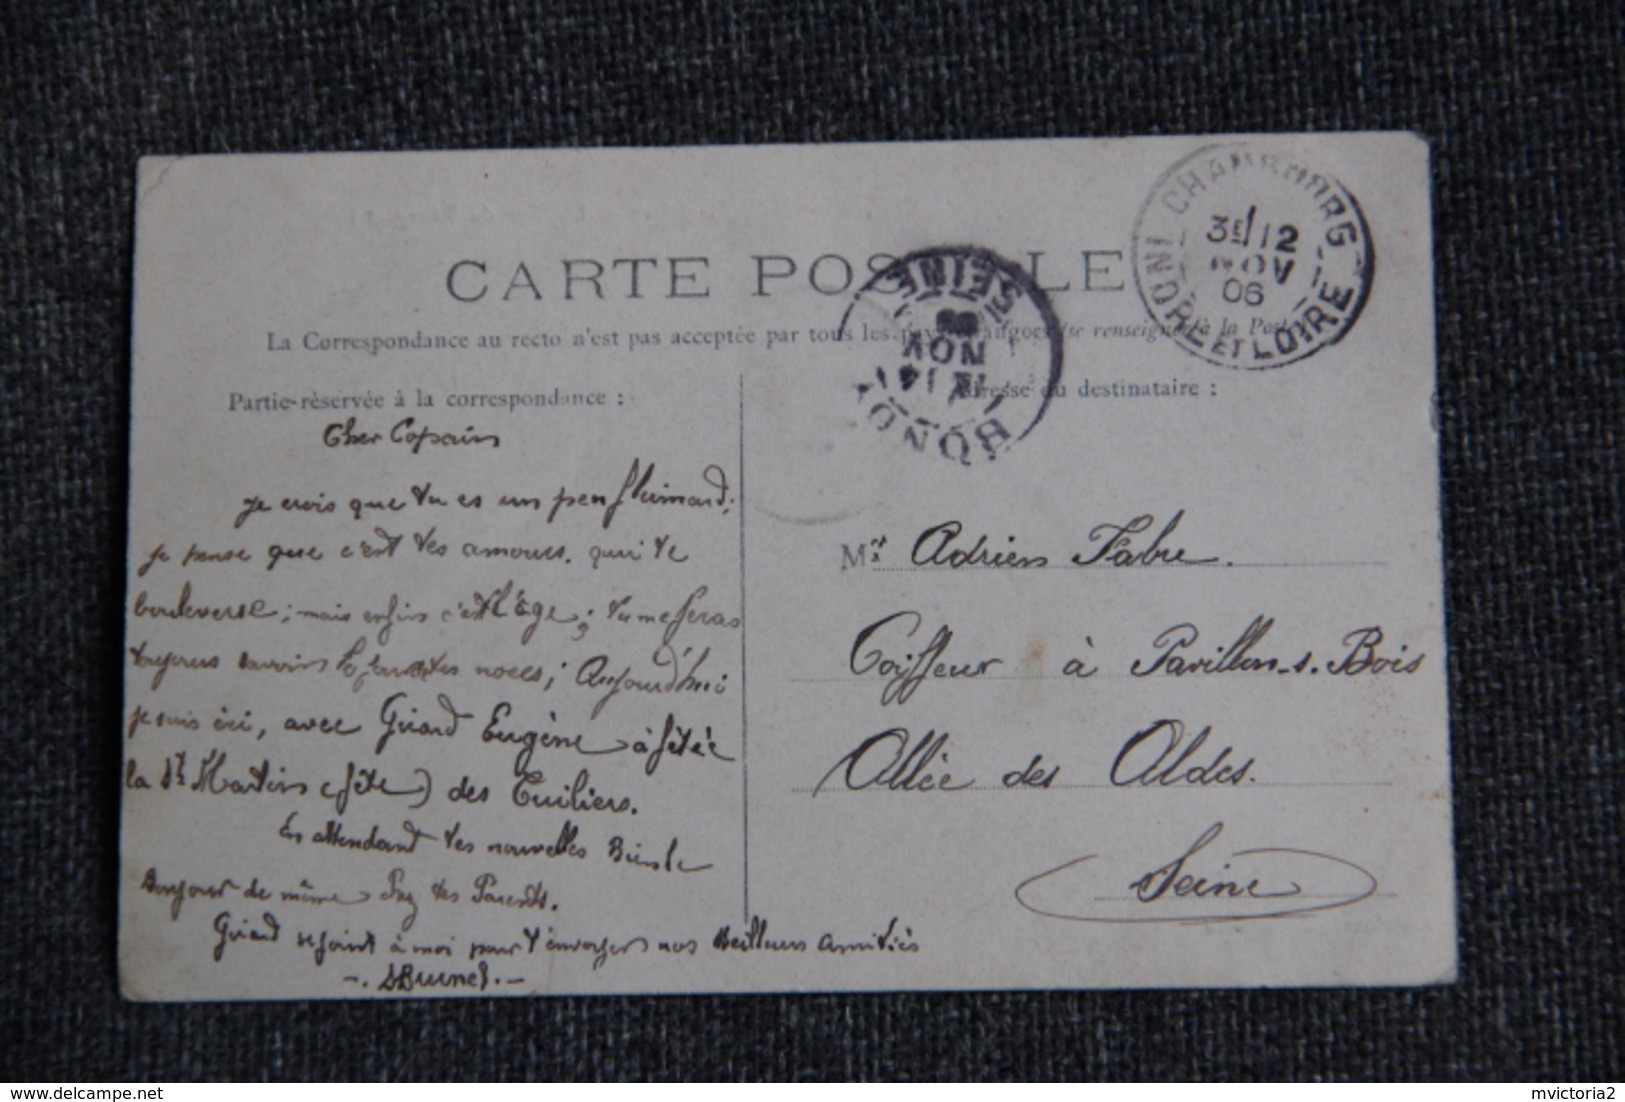 CARTE POSTALE
La Correspondance au recto n'est pas acceptée par tous les pays étrangers (se renseigner à la Poste)
Partie réservée à la correspondance :
Adresse du destinataire :
CHAMBOURG
INDRE ET LOIRE
3E/12
NOV
06
BONDY
SEINE
14
NOV
06
Cher Copain
Je crois que tu es un peu flémard;
je pense que c'est tes amours, qui te
bouleverse; mais enfin c'est l'âge; tu me feras
toujours savoir tes noces; Aujourd'hui
je suis ici, avec Girard Eugène à fêtée
la St Martin (fête) des Tuiliers.
En attendant tes nouvelles Bien le
Bonjour de même tes Parents.
Girard se joint à moi pour t'envoyer nos Meilleurs Amitiés
-. Brunet. -
Mr. Adrien Fabre.
Coiffeur à Pavillon-s.-Bois
Allée des Aldes.
Seine
mvictoria2